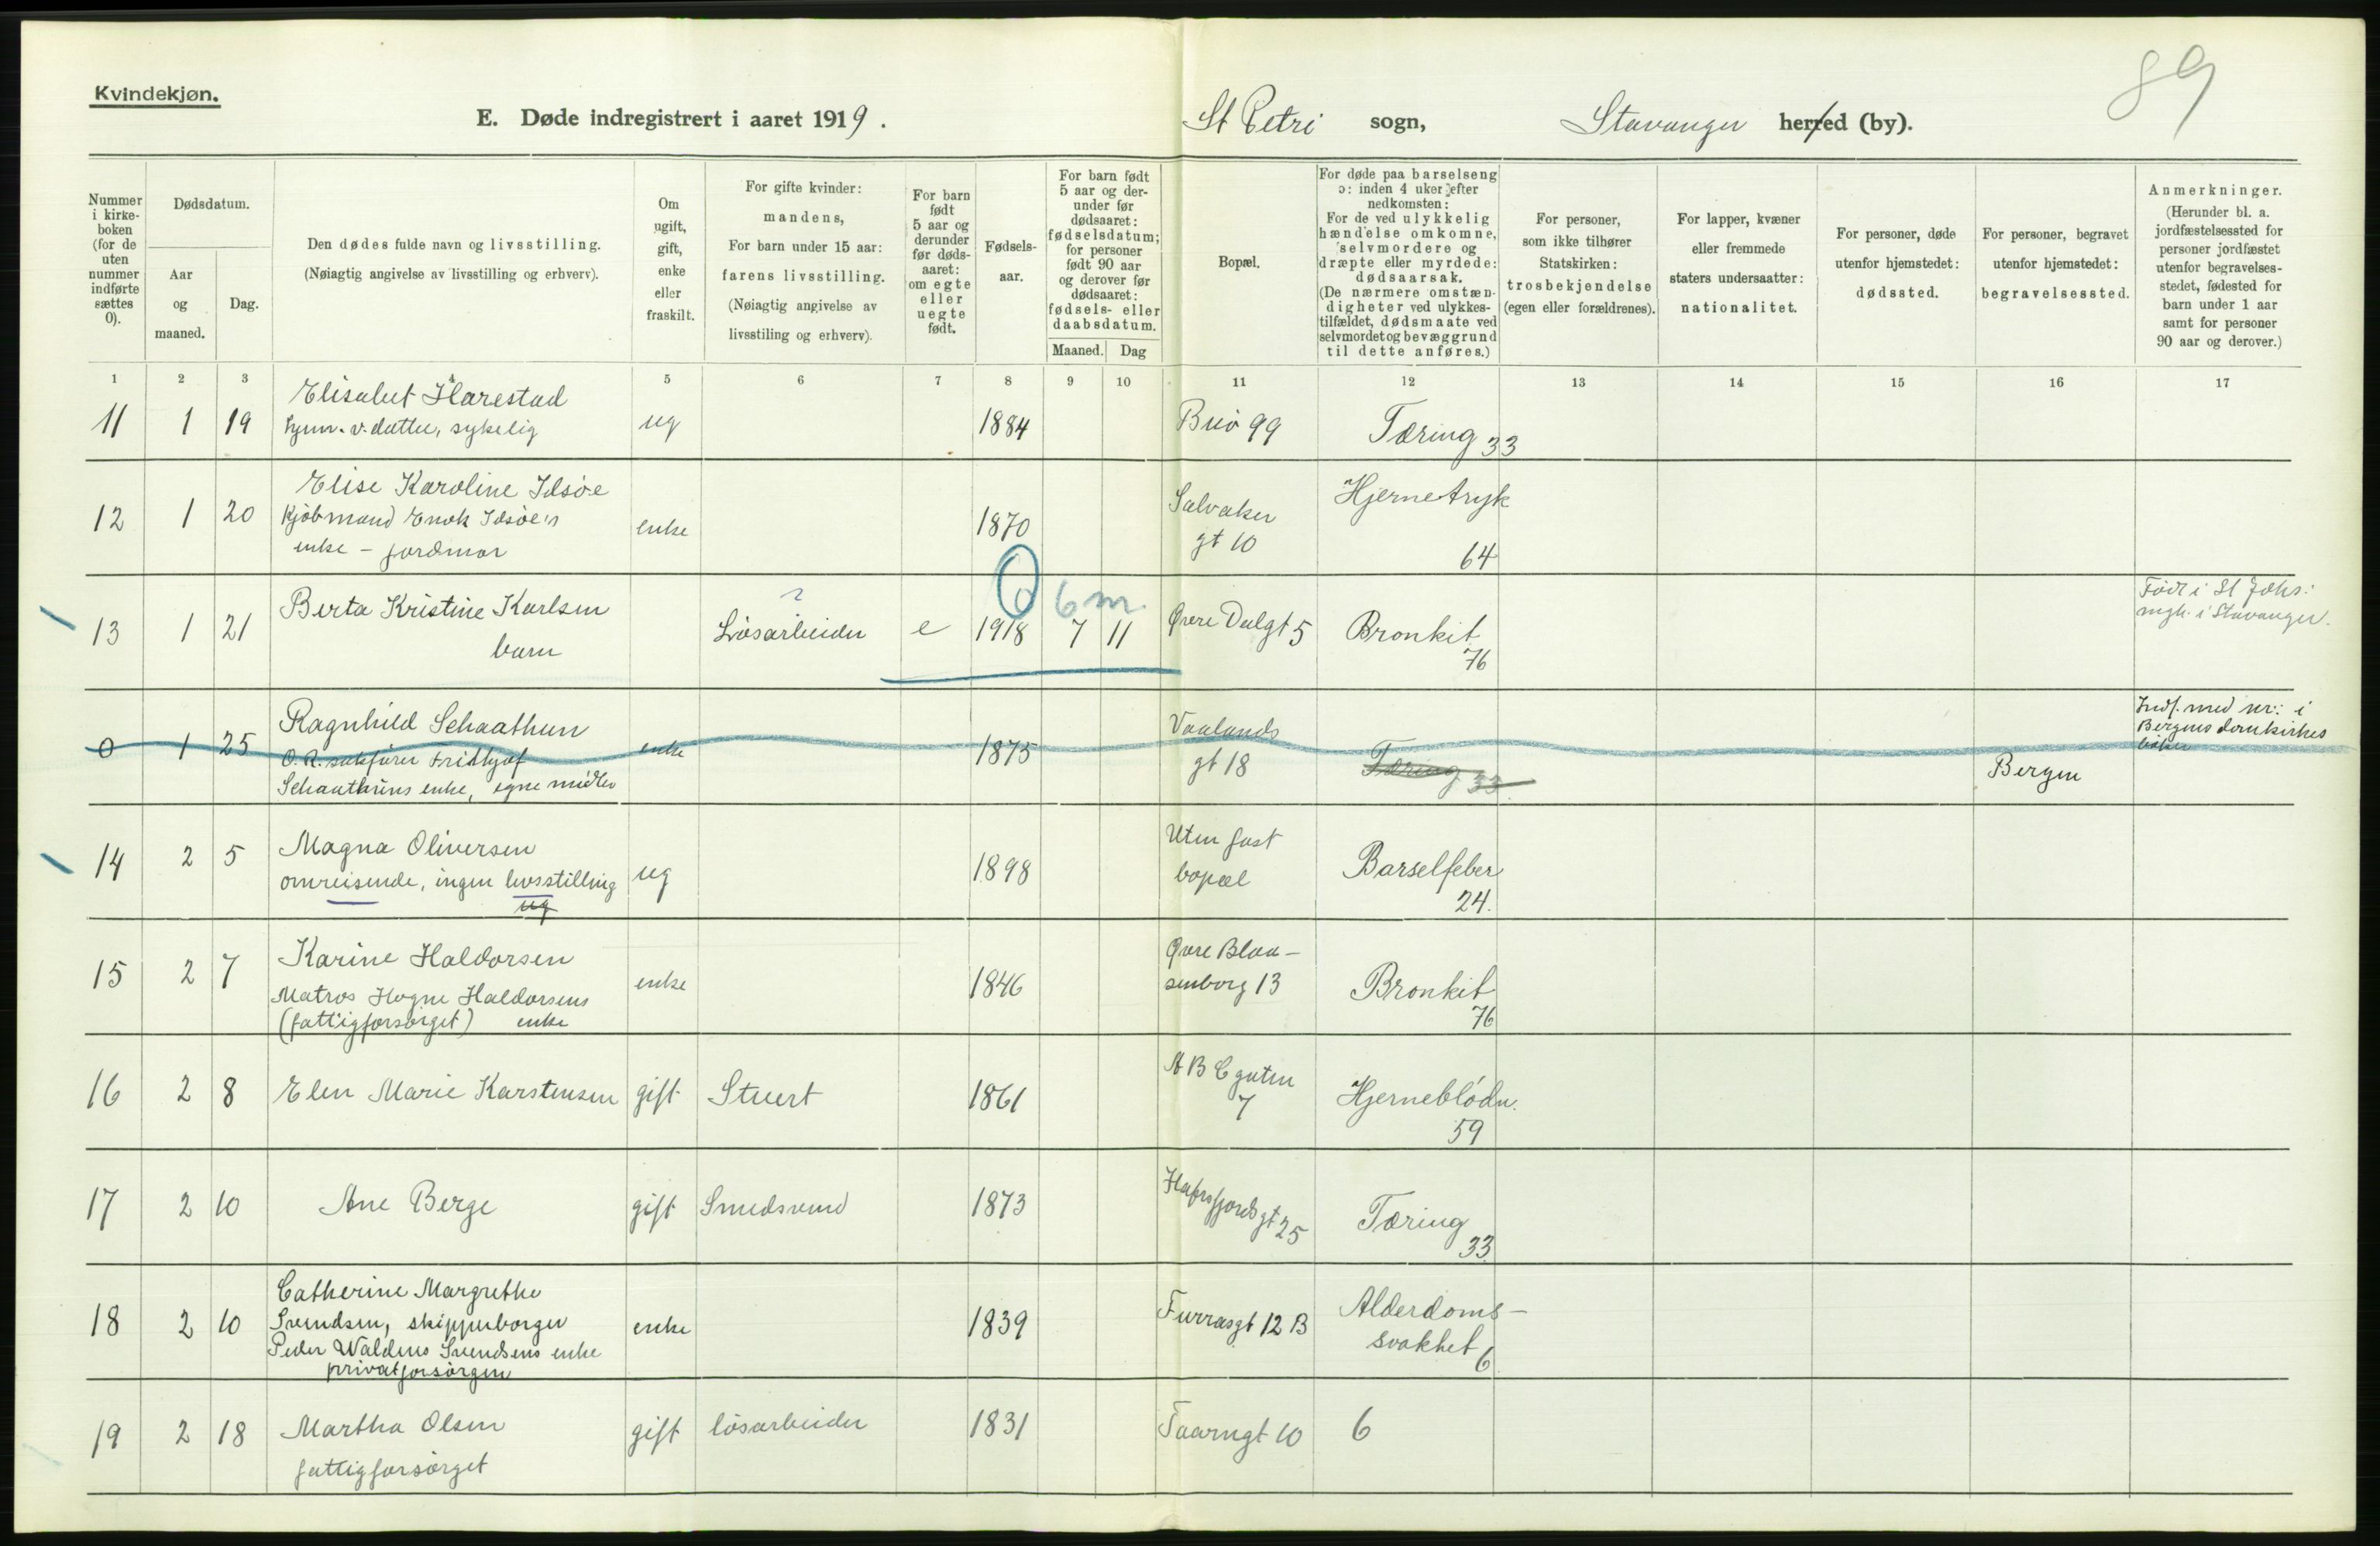 89
Kvindekjøn.
E. Døde indregistrert i aaret 1919.
St Petri sogn, Stavanger herred (by).
Nummer i kirke-boken (for de uten nummer indførte sættes 0).
Dødsdatum.
Aar og maaned.
Dag.
Den dødes fulde navn og livsstilling.
(Nøiagtig angivelse av livsstilling og erhverv).
Om ugift, gift, enke eller fraskilt.
For gifte kvinder: mandens,
For barn under 15 aar: farens livsstilling.
(Nøiagtig angivelse av livsstiling og erhverv).
For barn født 5 aar og derunder før døds-aaret: om egte eller uegte født.
Fødsels-aar.
For barn født 5 aar og der-under før dødsaaret: fødselsdatum; for personer født 90 aar og derover før dødsaaret: fødsels- eller daabsdatum.
Maaned. Dag
Bopæl.
For døde paa barselseng ɔ: inden 4 uker efter nedkomsten:
For de ved ulykkelig hændelse omkomne, selvmordere og dræpte eller myrdede: dødsaarsak.
(De nærmere omstæn-digheter ved ulykkes-tilfældet, dødsmaate ved selvmordet og bevæggrund til dette anføres.)
For personer, som ikke tilhører Statskirken: trosbekjendelse (egen eller forældrenes).
For lapper, kvæner eller fremmede staters undersaatter: nationalitet.
For personer, døde utenfor hjemstedet: dødssted.
For personer, begravet utenfor hjemstedet: begravelsessted.
Anmerkninger.
(Herunder bl. a. jordfæstelsessted for personer jordfæstet utenfor begravelses-stedet, fødested for barn under 1 aar samt for personer 90 aar og derover.)
1 2 3 4 5 6 7 8 9 10 11 12 13 14 15 16 17
Elisabet Harestad
11 1 19 v. datter, sykelig ug 1884 Buö 99 Tæring 33
Elise Karoline Idsöe
12 1 20 Kjöbmand Enok Idsöe's enke 1870 Salvaker gt 10 Hjernetryk 64
enke – jordmor
13 1 21 Berta Kristine Karlsen ? Lösarbeider e 1918 7 11 Övre Dalgt 5 Bronkit 76
barn 0 6 m.
Föd i St Johs: mgh. i Stavanger.
0 1 25 Ragnhild Schaathun enke 1875 Vaalands gt 18 Tæring 33 Bergen
O.R. sakförer Fridtjof
Schaathuns enke, egne midler
Indf. med nr: i Bergens domkirkes böker
14 2 5 Magna Oliversen ug 1898 Uten fast bopæl Barselfeber 24.
omreisende, ingen livsstilling
ug
15 2 7 Karine Haldorsen enke 1846 Övre Blaa-senborg 13 Bronkit 76
Matros Hogne Haldorsens
(fattigforsörget) enke
16 2 8 Elen Marie Karstensen gift Stuert 1861 A B C gaten 7 Hjerneblödn. 59
17 2 10 Ane Berge gift Smedsvend 1873 Hafrsfjords gt 25 Tæring 33
Catherine Margrethe
18 2 10 Svendsen, skipperborger enke 1839 Furrasgt 12 B Alderdoms-svakhet 6
Peder Waldens Svendsens enke
privatforsörgen
19 2 18 Martha Olsen gift lösarbeider 1831 Taarngt 10 6
fattigforsörget